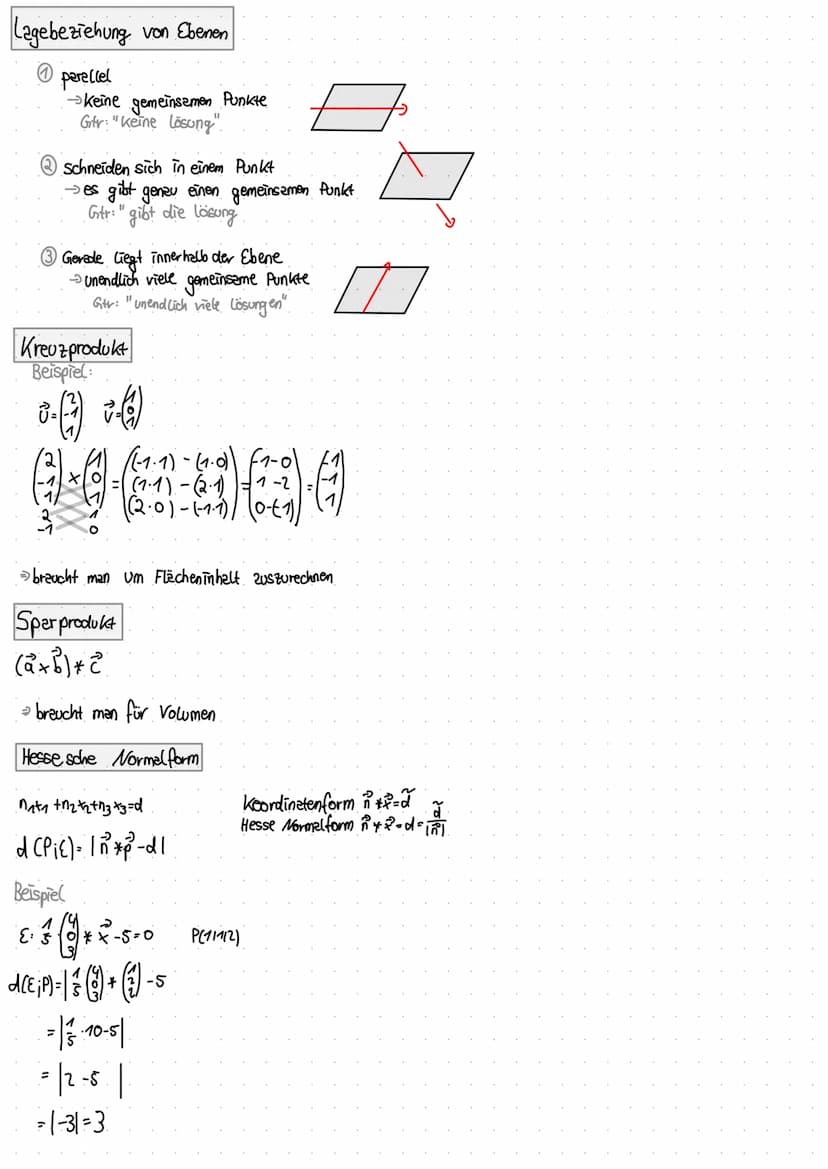 Lagebeziehung von Ebenen
① parellel
→ Keine gemeinsamen Punkte
Gtr: "Keine Lösung"
② schneiden sich in einem Punkt
→ es gibt genau einen gemeinsamen Punkt
Gtr: "gibt die Lösung
③ Gerade liegt innerhalb der Ebene
→ unendlich viele gemeinsame Punkte
Gtr: "unendlich viele Lösungen"
Kreuzprodukt
Beispiel:
u⃗ = (2 -1 1) v⃗ = (1 0 1)
(2 -1 1) × (1 0 1) = ((-1·1) - (1·0) (1·1) - (2·1) (2·0) - (-1·1)) = (-1-0 1-2 0-(-1)) = (-1 -1 1)
2 1
-1 0
⇒ braucht man um Flächeninhalt auszurechnen
Sparprodukt
(a⃗ × b⃗) * c⃗
⇒ braucht man für Volumen
Hesse sche Normalform
n₁x₁ + n₂x₂ + n₃x₃ = d
Koordinatenform n⃗ * x⃗ = d̃
Hesse Normalform n⃗ * x⃗ = d = d̃/|n⃗|
d(P;E) = |n⃗ * p⃗ - d|
Beispiel
E: 1/5 (4 0 3) * x⃗ - 5 = 0 P(1|1|2)
d(E;P) = |1/5 (4 0 3) * (1 2 2) - 5
= |1/5 · 10 - 5|
= |2 - 5 |
= |-3| = 3